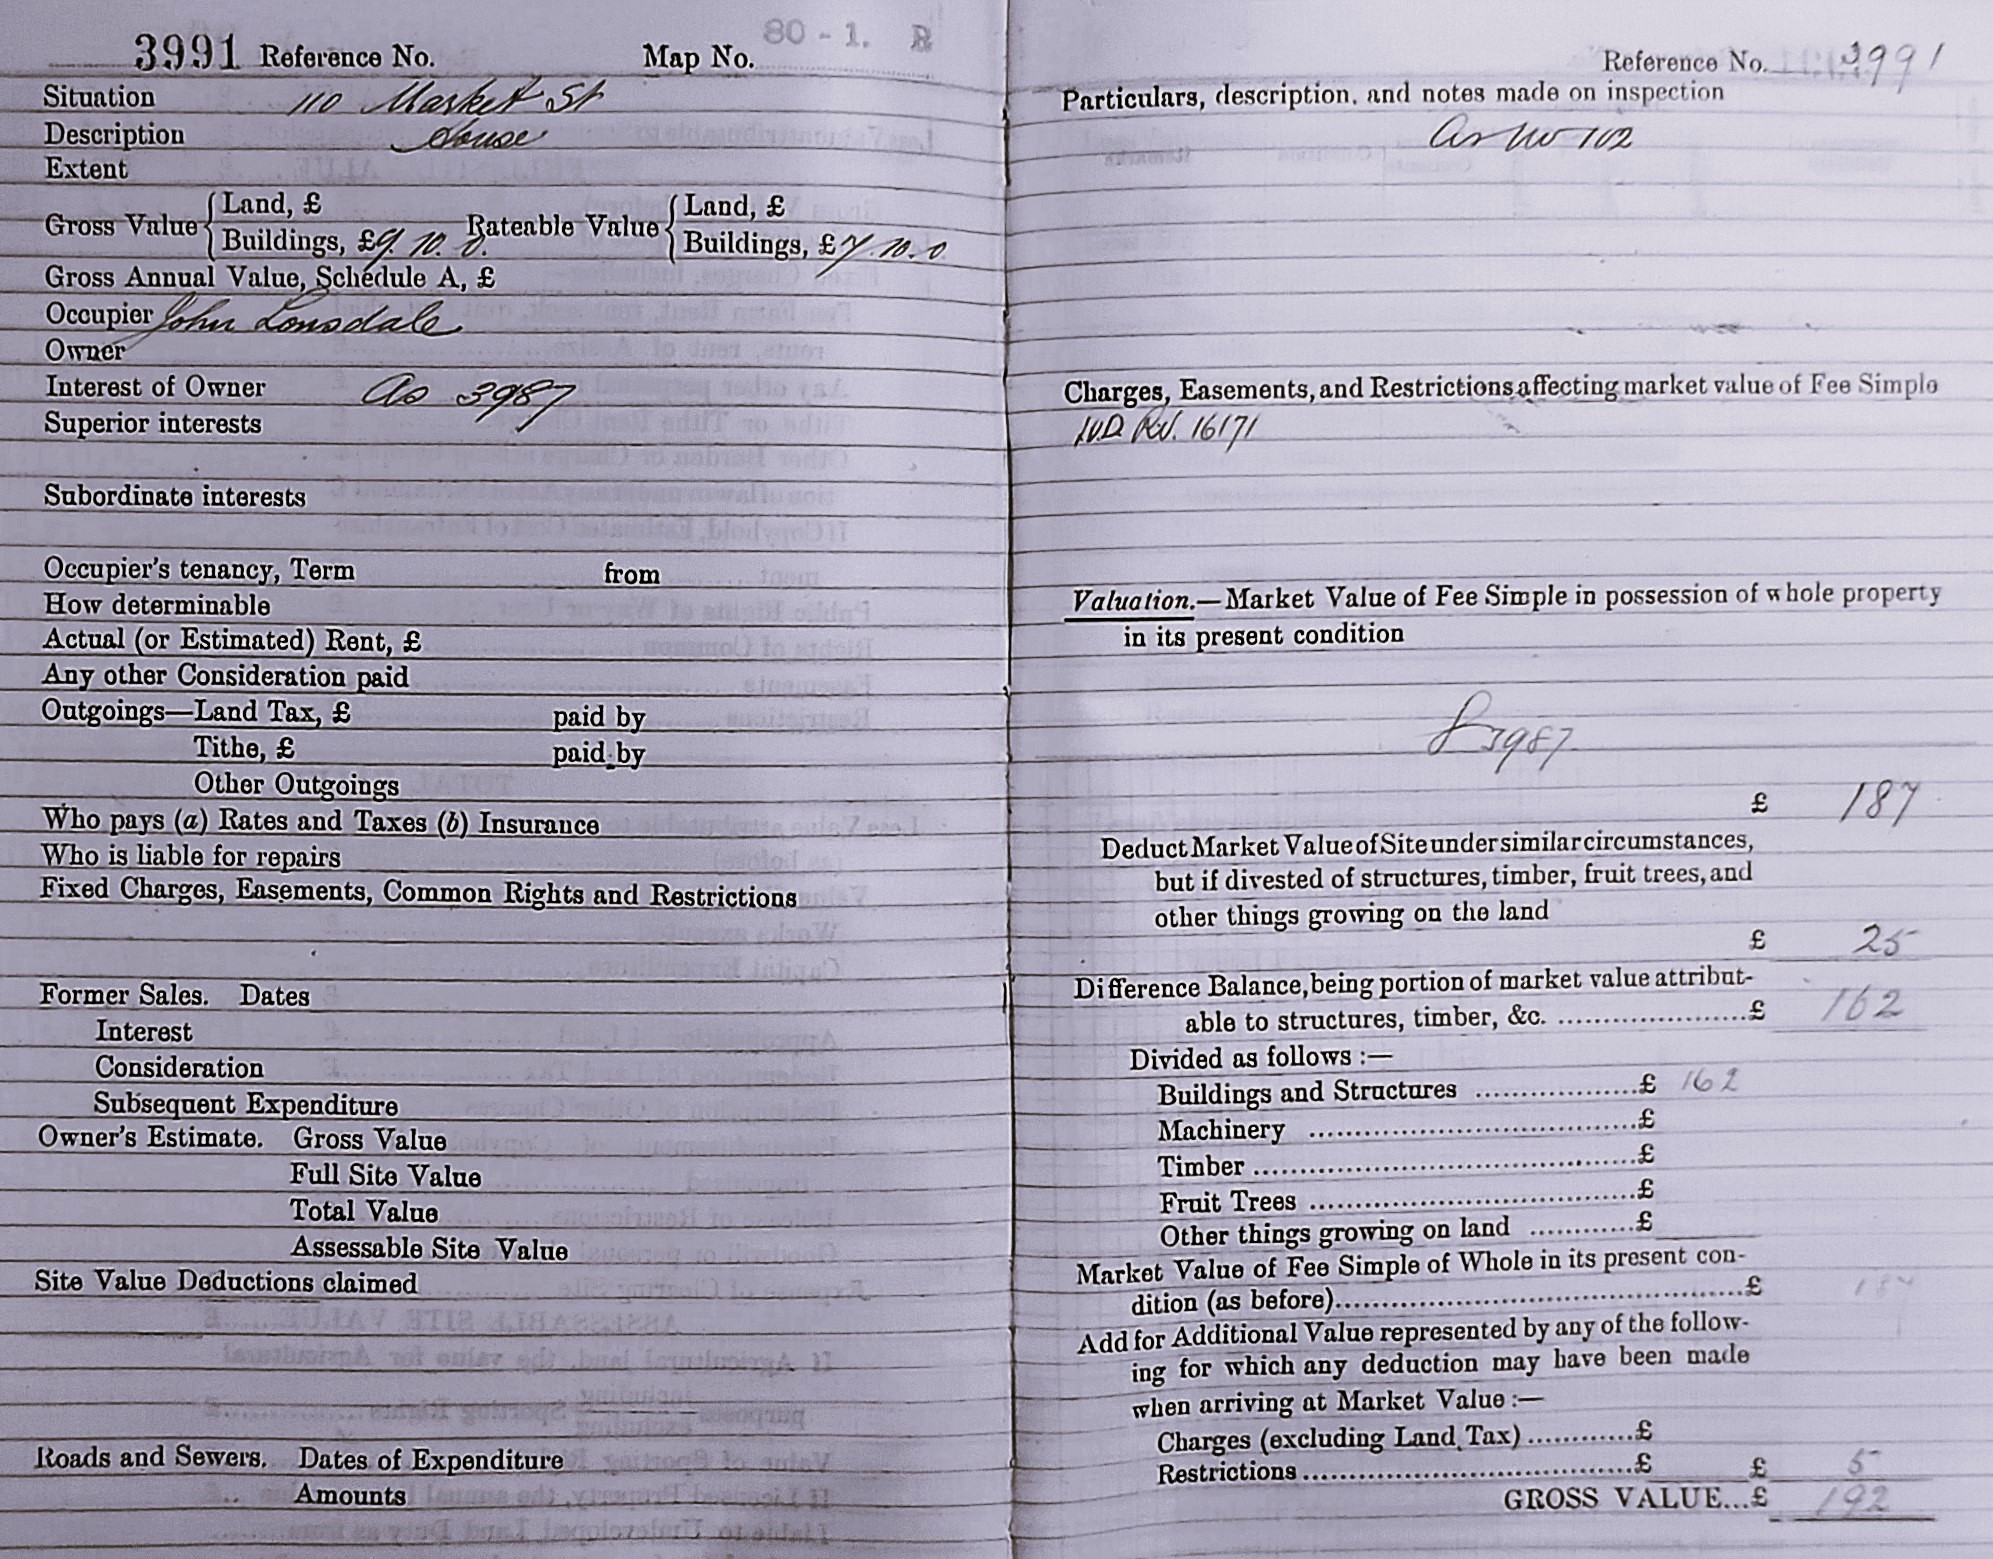 3991 Reference No. Map No. 80 - 1. B
Situation 110 Market St
Description House
Extent
Gross Value { Land, £
Buildings, £9. 10. 0. Rateable Value { Land, £
Buildings, £7. 10. 0
Gross Annual Value, Schedule A, £
Occupier John Lonsdale
Owner
Interest of Owner As 3987
Superior interests
Subordinate interests
Occupier's tenancy, Term from
How determinable
Actual (or Estimated) Rent, £
Any other Consideration paid
Outgoings—Land Tax, £ paid by
Tithe, £ paid by
Other Outgoings
Who pays (a) Rates and Taxes (b) Insurance
Who is liable for repairs
Fixed Charges, Easements, Common Rights and Restrictions
Former Sales. Dates
Interest
Consideration
Subsequent Expenditure
Owner's Estimate. Gross Value
Full Site Value
Total Value
Assessable Site Value
Site Value Deductions claimed
Roads and Sewers. Dates of Expenditure
Amounts
Reference No. 3991
Particulars, description, and notes made on inspection
As No 102
Charges, Easements, and Restrictions affecting market value of Fee Simple
16171
Valuation.—Market Value of Fee Simple in possession of whole property
in its present condition
3987
£ 187
Deduct Market Value of Site under similar circumstances,
but if divested of structures, timber, fruit trees, and
other things growing on the land
£ 25
Difference Balance, being portion of market value attribut-
able to structures, timber, &c. ......................£ 162
Divided as follows :—
Buildings and Structures ..................£ 162
Machinery ....................................£
Timber ..........................................£
Fruit Trees ....................................£
Other things growing on land ............£
Market Value of Fee Simple of Whole in its present con-
dition (as before)............................................£ 187
Add for Additional Value represented by any of the follow-
ing for which any deduction may have been made
when arriving at Market Value :—
Charges (excluding Land Tax) ............£
Restrictions ....................................£ £ 5
GROSS VALUE...£ 192